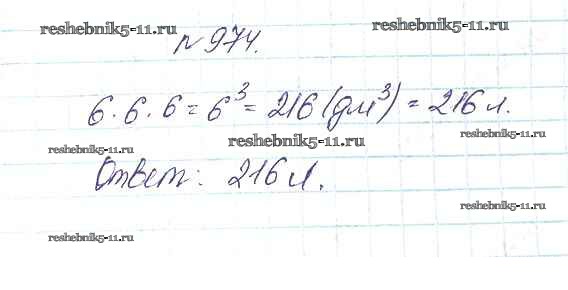 reshebnik5-11.ru
reshebnik5-11.ru
№ 974.
6 · 6 · 6 = 6³ = 216 (дм³) = 216 л.
reshebnik5-11.ru
reshebnik5-11.ru
reshebnik5-11.ru
Ответ: 216 л.
reshebnik5-11.ru
reshebnik5-11.ru